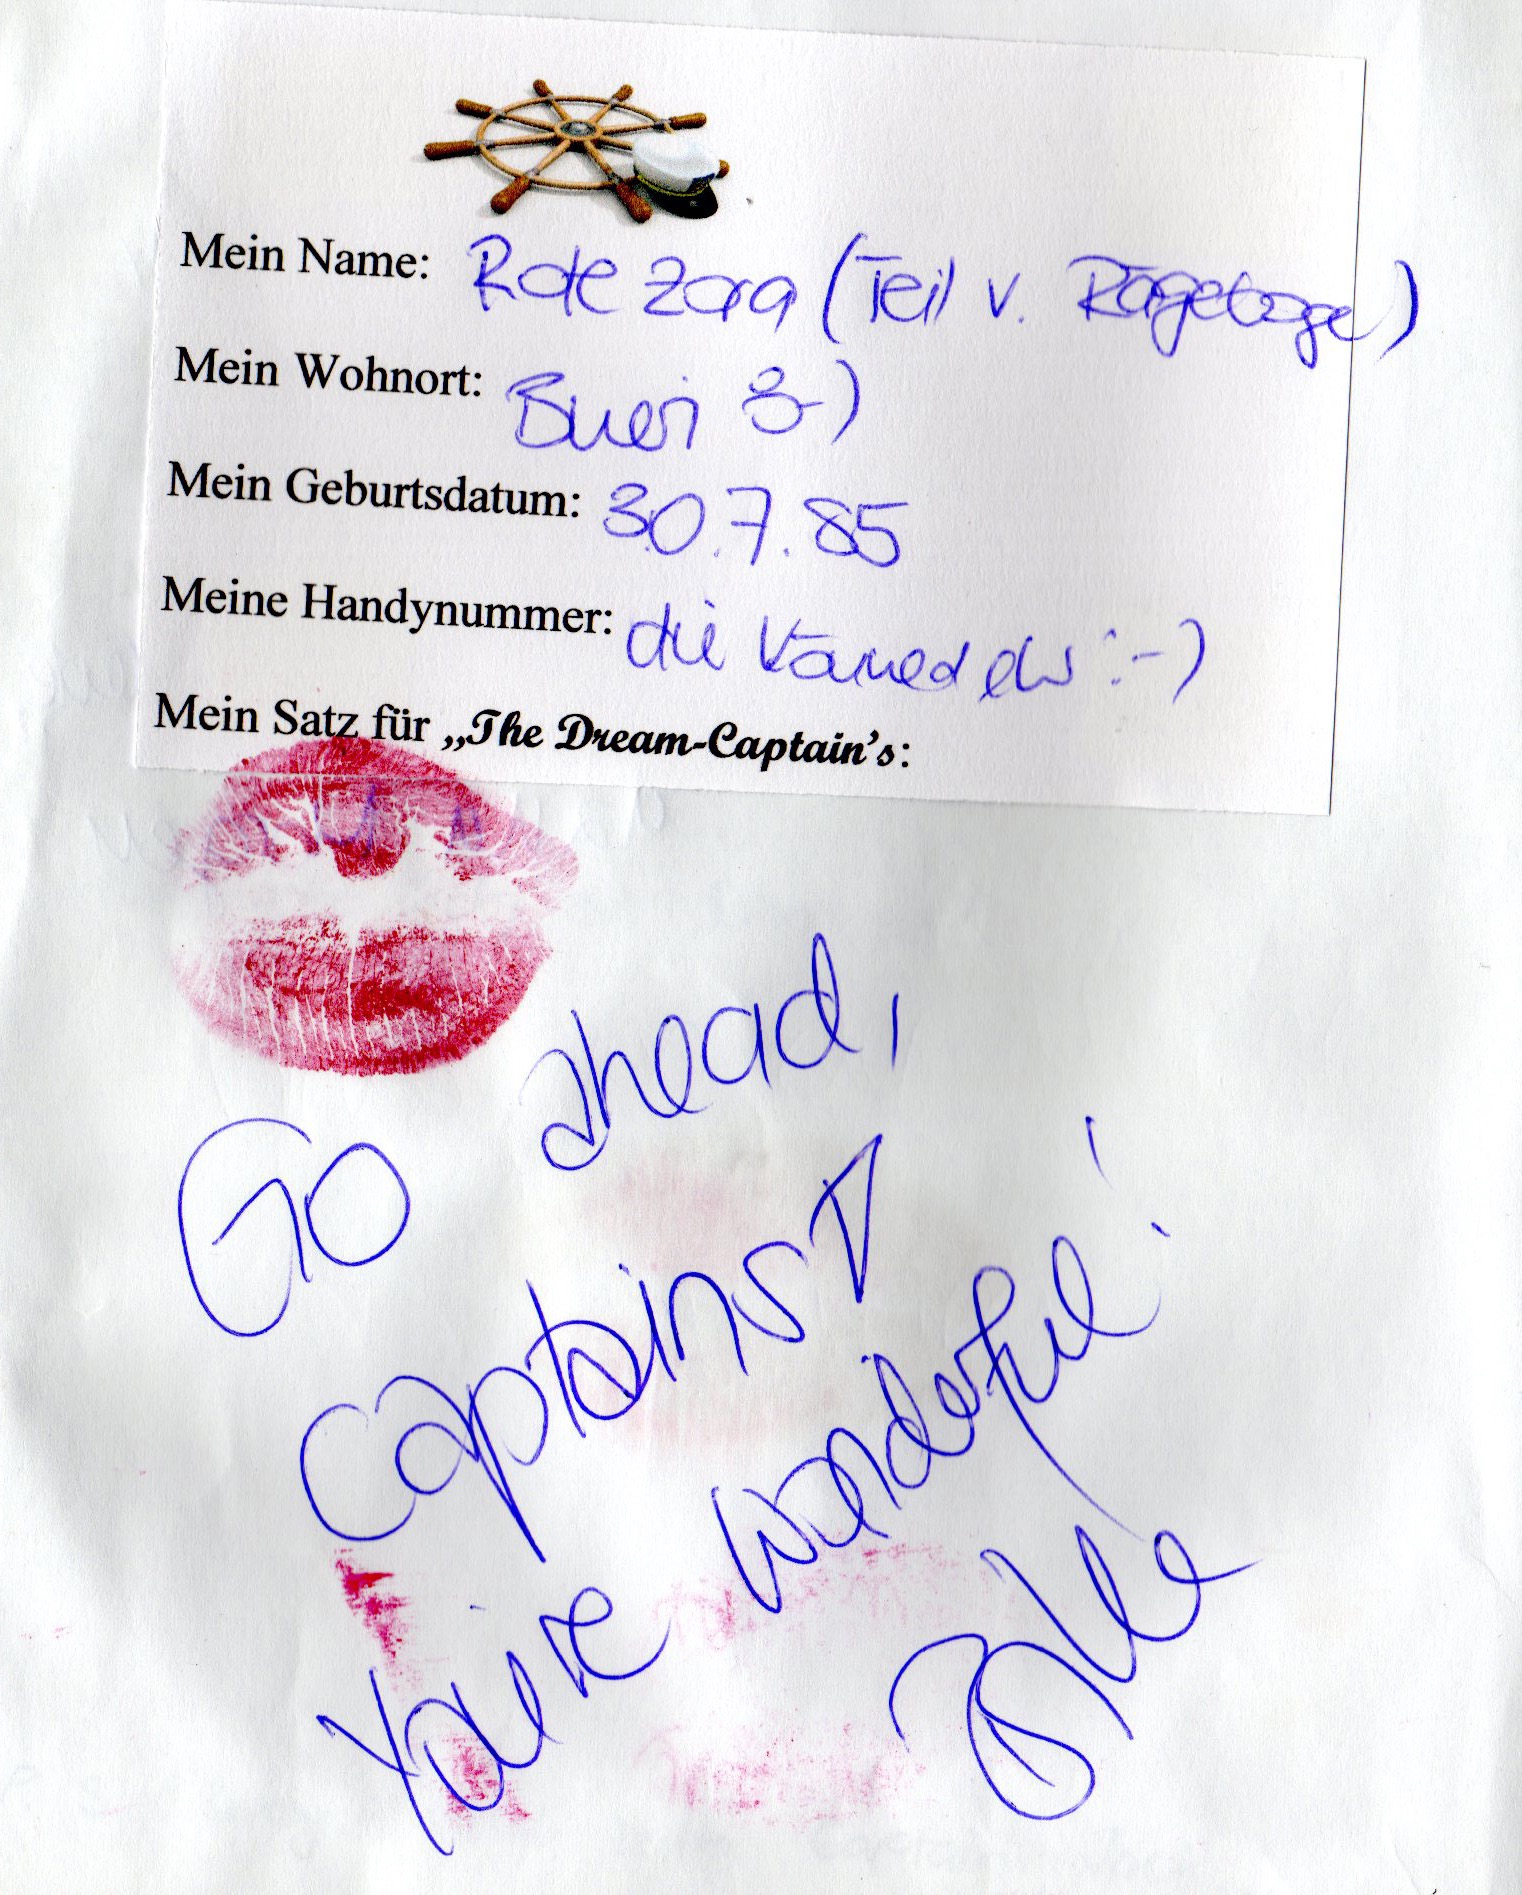 Mein Name: Rote Zora (Teil v. Rägeboge)
Mein Wohnort: Bueri 8-)
Mein Geburtsdatum: 30.7.85
Meine Handynummer: die :-)
Mein Satz für „The Dream-Captain's:
Go ahead,
captains!
You're wonderful!